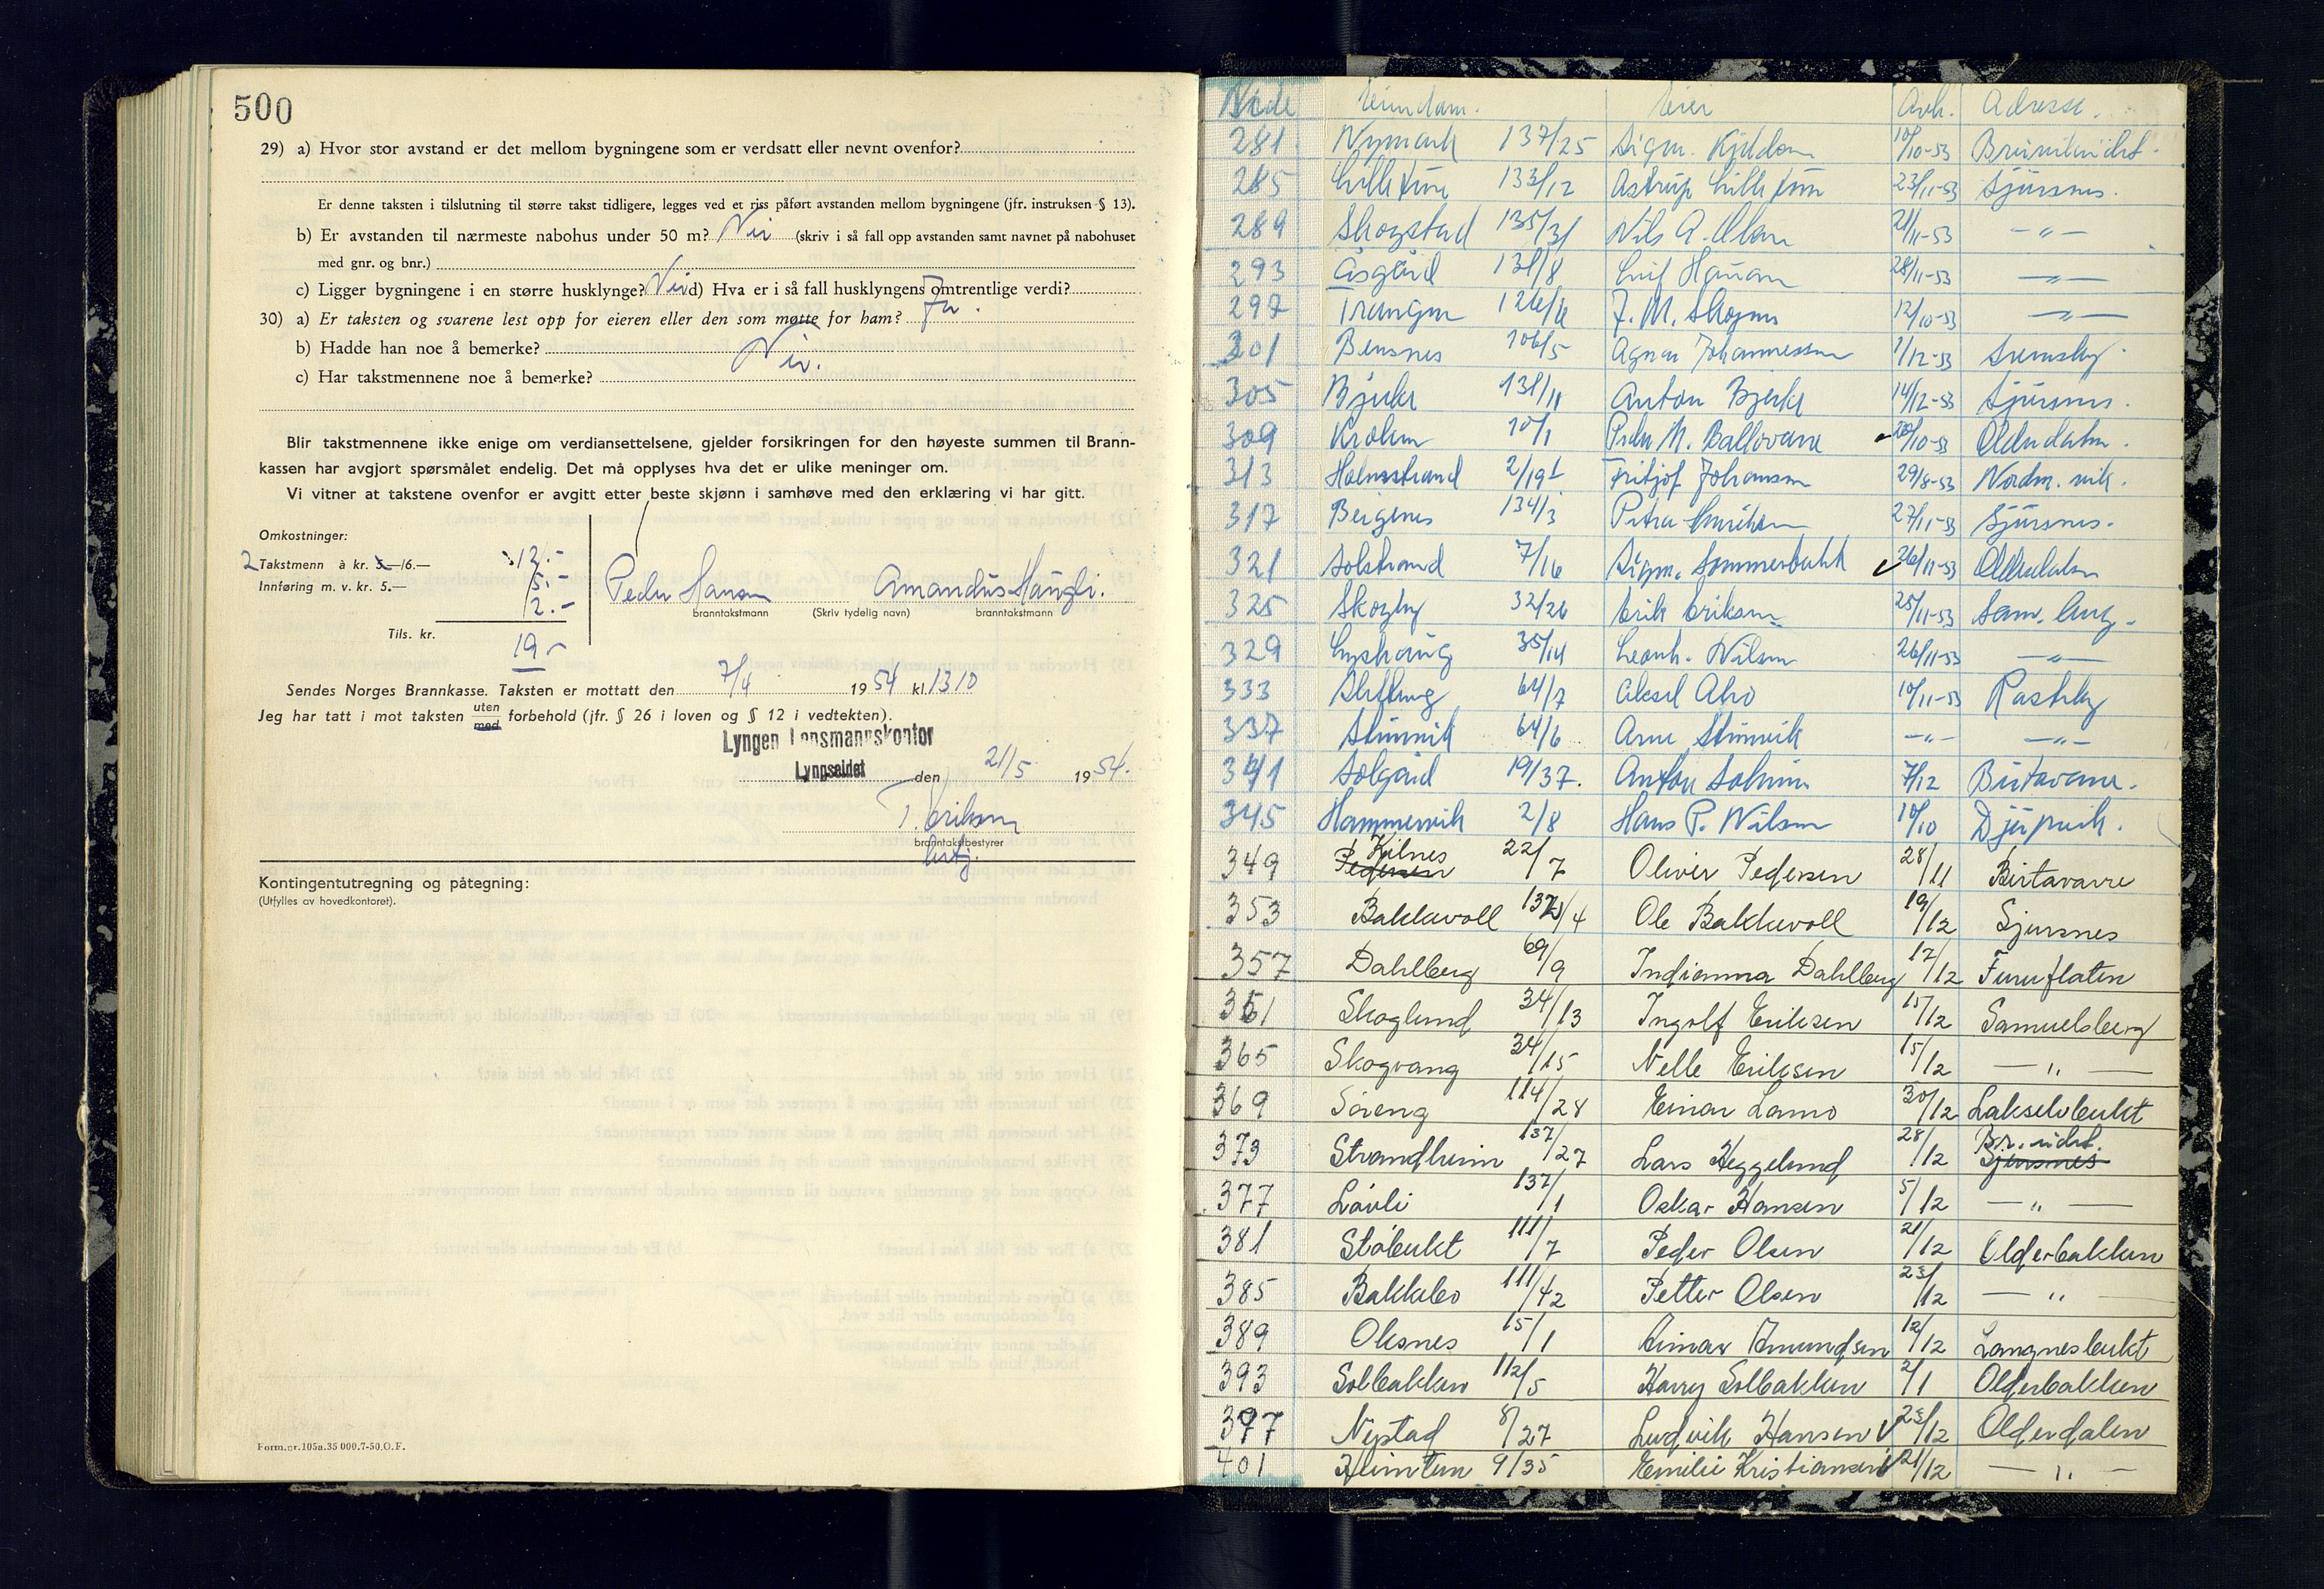 500
29) a) Hvor stor avstand er det mellom bygningene som er verdsatt eller nevnt ovenfor?
Er denne taksten i tilslutning til større takst tidligere, legges ved et riss påført avstanden mellom bygningene (jfr. instruksen § 13).
b) Er avstanden til nærmeste nabohus under 50 m? Nei (skriv i så fall opp avstanden samt navnet på nabohuset
med gnr. og bnr.)
c) Ligger bygningene i en større husklynge? Nei d) Hva er i så fall husklyngens omtrentlige verdi?
30) a) Er taksten og svarene lest opp for eieren eller den som møtte for ham? Ja.
b) Hadde han noe å bemerke?
Nei.
c) Har takstmennene noe å bemerke?
Blir takstmennene ikke enige om verdiansettelsene, gjelder forsikringen for den høyeste summen til Brann-
kassen har avgjort spørsmålet endelig. Det må opplyses hva det er ulike meninger om.
Vi vitner at takstene ovenfor er avgitt etter beste skjønn i samhøve med den erklæring vi har gitt.
Omkostninger:
2 Takstmenn à kr. 5—/6.— 12.-
Innføring m. v. kr. 5.— 5.-
2.-
Tils. kr. 19.-
Peder Hansen Amandus Haugli.
branntakstmann (Skriv tydelig navn) branntakstmann
Sendes Norges Brannkasse. Taksten er mottatt den 7/4 1954 kl. 1310
Jeg har tatt i mot taksten uten med forbehold (jfr. § 26 i loven og § 12 i vedtekten).
Lyngen Lensmannskontor
Lyngseidet den 21/5 1954.
T. Eriksen
branntakstbestyrer
betj.
Kontingentutregning og påtegning:
(Utfylles av hovedkontoret).
Form.nr.105a.35 000.7-50.O.F.
Side Eiendom. Eier Avh. Adresse.
281 Nymark 137/25 Sigm. Kjeldsen 10/10-53
285 Lilletun 133/12 Astrup Lilletun 23/11-53 Sjursnes.
289 Skogstad 135/31 Nils A. Olsen 21/11-53 -"-
293 Åsgård 131/8 Leif Hansen 28/11-53 -"-
297 126/6 J. M. Skognes 12/10-53 -"-
301 Bensnes 106/5 Agnar Johannessen 1/12-53 Svensby.
305 Bjerke 131/11 Anton Bjerke 14/12-53 Sjursnes.
309 Kroken 10/1 Peder M. Ballovara 20/10-53 Olderdalen.
313 Holmestrand 2/191 Fritjof Johansen 29/8-53 Nordm. vik.
317 Beigenes 134/3 Petra Henriksen 27/11-53 Sjursnes.
321 Solstrand 7/16 Sigm. Sommerbakk 26/11-53 Olderdalen
325 Skogly 32/26 Erik Eriksen 25/11-53 Sam. berg.
329 Lyshaug 35/14 Leonh. Nilsen 26/11-53 -"-
333 64/7 Aksel Alvo 10/11-53 Rasteby
337 Steinvik 64/6 Arne Steinvik -"- -"-
341 Solgård 19/37. Anton Solheim 7/12 Birtavarre.
345 Hammervik 2/8 Hans P. Nilsen 10/10 Djupvik.
349 Kilnes Pedersen 22/7 Oliver Pedersen 28/11 Birtavarre
353 Bakkevoll 132/4 Ole Bakkevoll 19/12 Sjursnes
357 Dahlberg 69/9 Indianna Dahlberg 17/12 Furuflaten
361 Skoglund 34/13 Ingolf Eriksen 15/12 Samuelsberg
365 Skogvang 34/15 Nelle Eriksen 15/12 — " —
369 Søreng 114/28 Einar Lamo 30/12 Lakselvbukt
373 Strandheim 137/27 Lars Heggelund 28/12 Br. eidet. Sjursnes
377 Løvli 137/1 Oskar Hansen 5/12 — " —
381 Støbukt 111/7 Peder Olsen 21/12 Olderbakken
385 Bakkebo 111/42 Petter Olsen 23/12 — " —
389 Oksnes 15/1 Einar Amundsen 12/12 Langnesbukt
393 Solbakken 112/5 Harry Solbakken 2/1 Olderbakken
397 Nystad 8/27 Ludvik Hansen 23/12 Olderdalen
401 Heimtun 9/35 Emilie Kristiansen 21/12 — " —